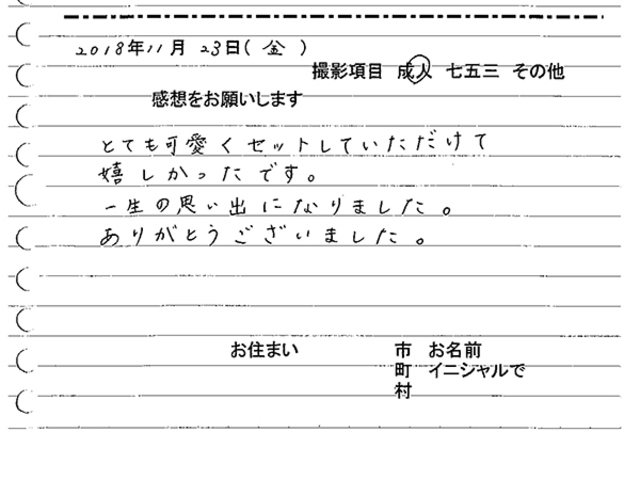 2018年11月23日(金)
撮影項目 成人 七五三 その他
感想をお願いします
とても可愛くセットしていただけて
嬉しかったです。
一生の思い出になりました。
ありがとうございました。
お住まい 市 お名前
町 イニシャルで
村